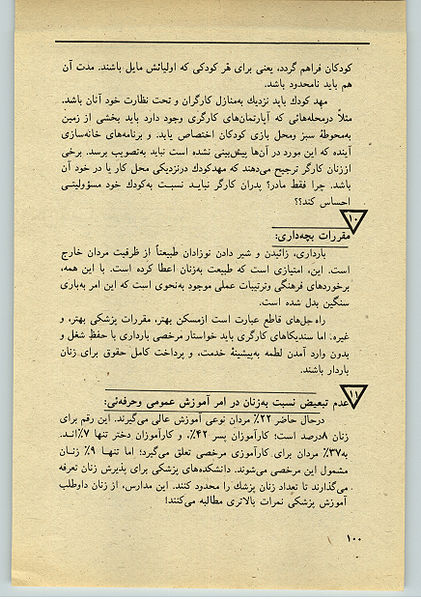 کودکان فراهم گردد، یعنی برای هر کودکی که اولیائش مایل باشند. مدت آن
هم باید نامحدود باشد.
مهد کودك باید نزدیك به‌منازل کارگران و تحت نظارت خود آنان باشد.
مثلاً درمحله‌هائی که آپارتمان‌های کارگری وجود دارد باید بخشی از زمین
به‌محوطهٔ سبز ومحل بازی کودکان اختصاص یابد. و برنامه‌های خانه‌سازی
آینده که این مورد در آن‌ها پیش‌بینی نشده است نباید به‌تصویب برسد. برخی
اززنان کارگر ترجیح می‌دهند که مهدکودك درنزدیکی محل کار یا در خود آن
باشد. چرا فقط مادر؟ پدران کارگر نبایـد نسبـت به‌کودك خود مسؤولیتـی
احساس کند؟؟
۱۰
مقررات بچه‌داری:
بارداری، زائیدن و شیر دادن نوزادان طبیعتاً از ظرفیت مردان خارج
است. این، امتیازی است که طبیعت به‌زنان اعطا کرده است. با این همه،
برخوردهای فرهنگی وترتیبات عملی موجود به‌نحوی است که این امر به‌باری
سنگین بدل شده است.
راه حل‌های قاطع عبارت است ازمسکن بهتر، مقررات پزشکی بهتر، و
غیره. اما سندیکاهای کارگری باید خواستار مرخصی بارداری با حفظِ شغل و
بدون وارد آمدن لطمه به‌پیشینهٔ خدمت، و پرداخت کامل حقوق برای زنان
باردار باشند.
۱۱
عدم تبعیض نسبت به‌زنان در امر آموزش عمومی وحرفه‌ئی:
درحال حاضر ۲۲٪ مردان نوعی آموزش عالی می‌گیرند. این رقم برای
زنان ۸درصد است؛ کارآموزان پسر ۴۲٪، و کارآموزان دختر تنها ۷٪انـد.
به۳۷٪ مردان برای کارآموزی مرخصی تعلق می‌گیرد؛ اما تنهـا ۹٪ زنـان
مشمول این مرخصی می‌شوند. دانشکده‌های پزشکی برای پذیرش زنان تعرفه
می‌گذارند تا تعداد زنان پزشك را محدود کنند. این مدارس، از زنان داوطلب
آموزش پزشکی نمرات بالاتری مطالبه می‌کنند!
۱۰۰